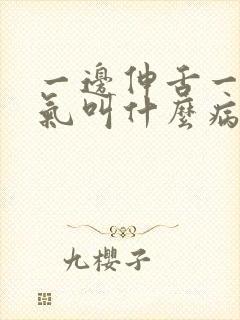 一邊伸舌一
氣叫什麼病
九櫻子